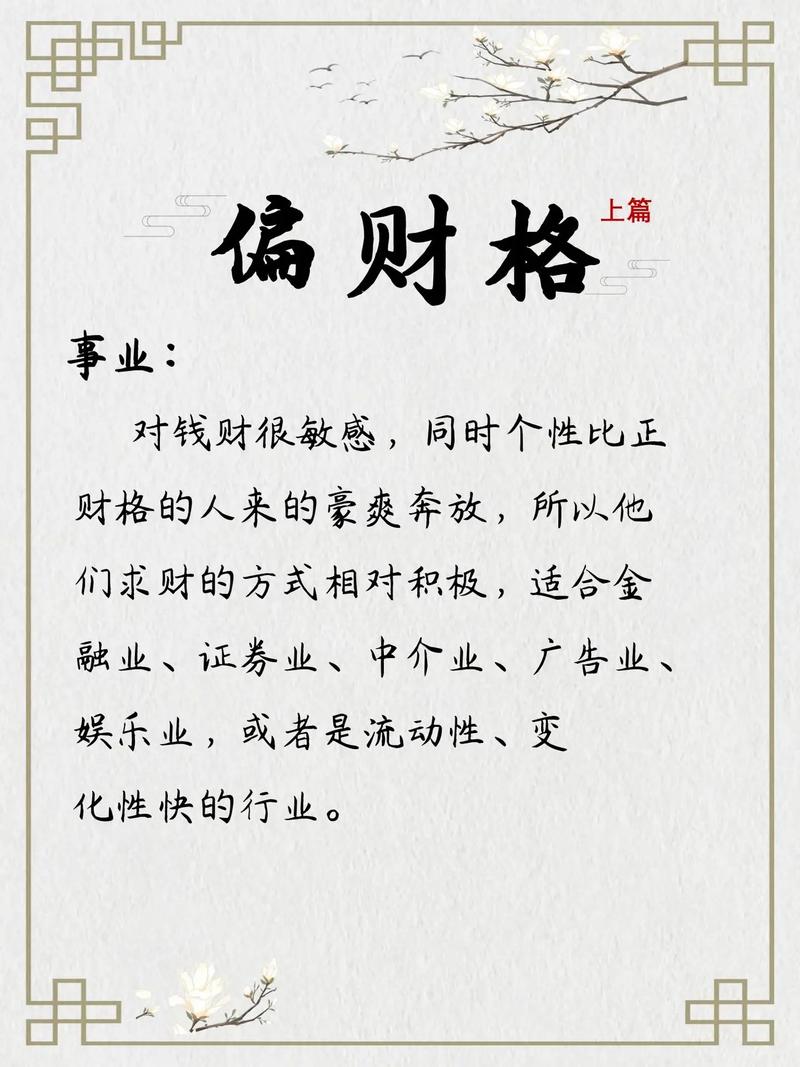 偏财格
上篇
事业：
对钱财很敏感，同时个性比正
财格的人来的豪爽奔放，所以他
们求财的方式相对积极，适合金
融业、证券业、中介业、广告业、
娱乐业，或者是流动性、变
化性快的行业。